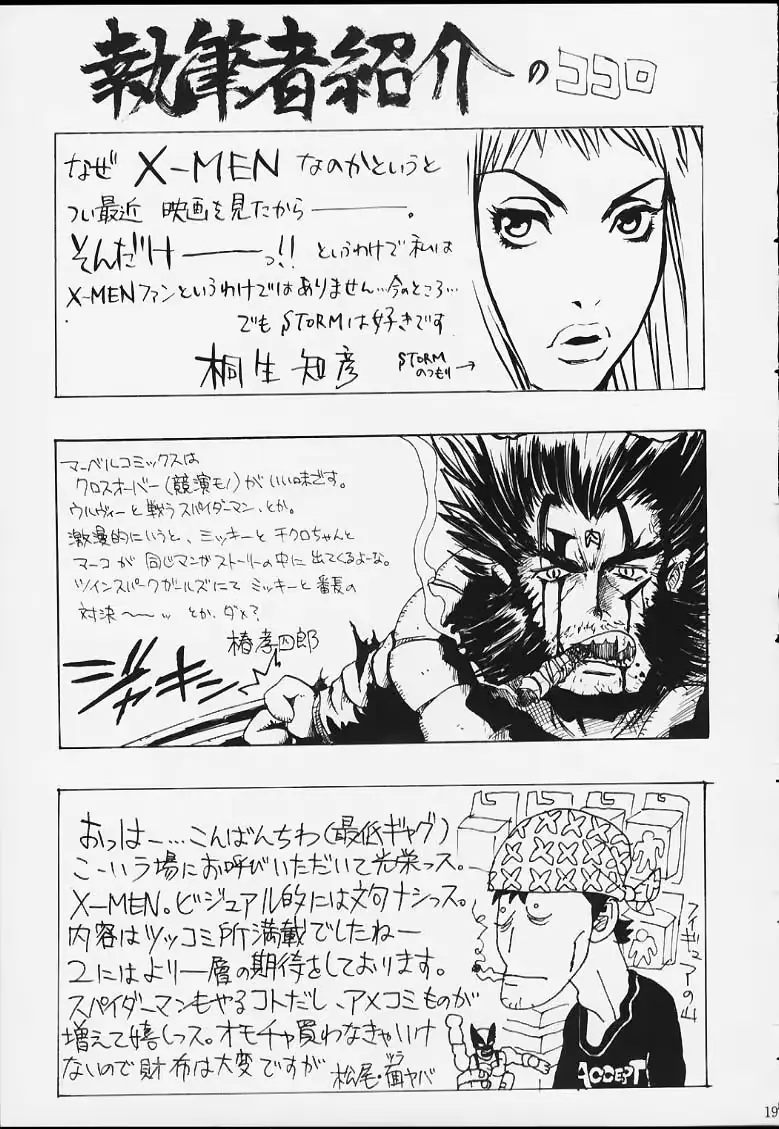 執筆者紹介のココロ
なぜ X-MEN なのかというと
つい最近 映画を見たから———。
そんだけ——っ!! というわけで私は
X-MENファンというわけではありません…今のところ…
でも STORMは好きです
桐生知彦
STORM
のつもり→
マーベルコミックスは
クロスオーバー(競演モノ)がいい味です。
ウルヴィーと戦うスパイダーマン、とか。
激漫的にいうと、ミッキーとチクロちゃんと
マーコが同じマンガストーリーの中に出てくるよーな。
ツインスパークガールズにてミッキーと番長の
対決〜〜〃 とか、ダメ?
椿孝四郎
ジャキン
肉
おっはー…こんばんちわ(最低ギャグ)
こーいう場にお呼びいただいて光栄っス。
X-MEN。ビジュアル的には文句ナシっス。
内容はツッコミ所満載でしたねー
2にはより一層の期待をしております。
スパイダーマンもやるコトだし、アメコミものが
増えて嬉しっス。オモチャ買わなきゃいけ
ないので財布は大変ですが
松尾・面ヤバ
ヅラ
フィギュアの山
ACCEPT
19